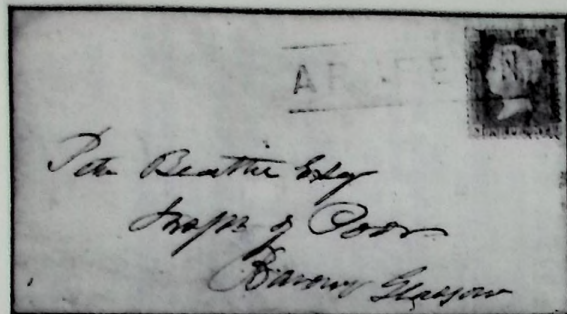 Peter Beattie Esq
Inspr of Poor
Barony Glasgow